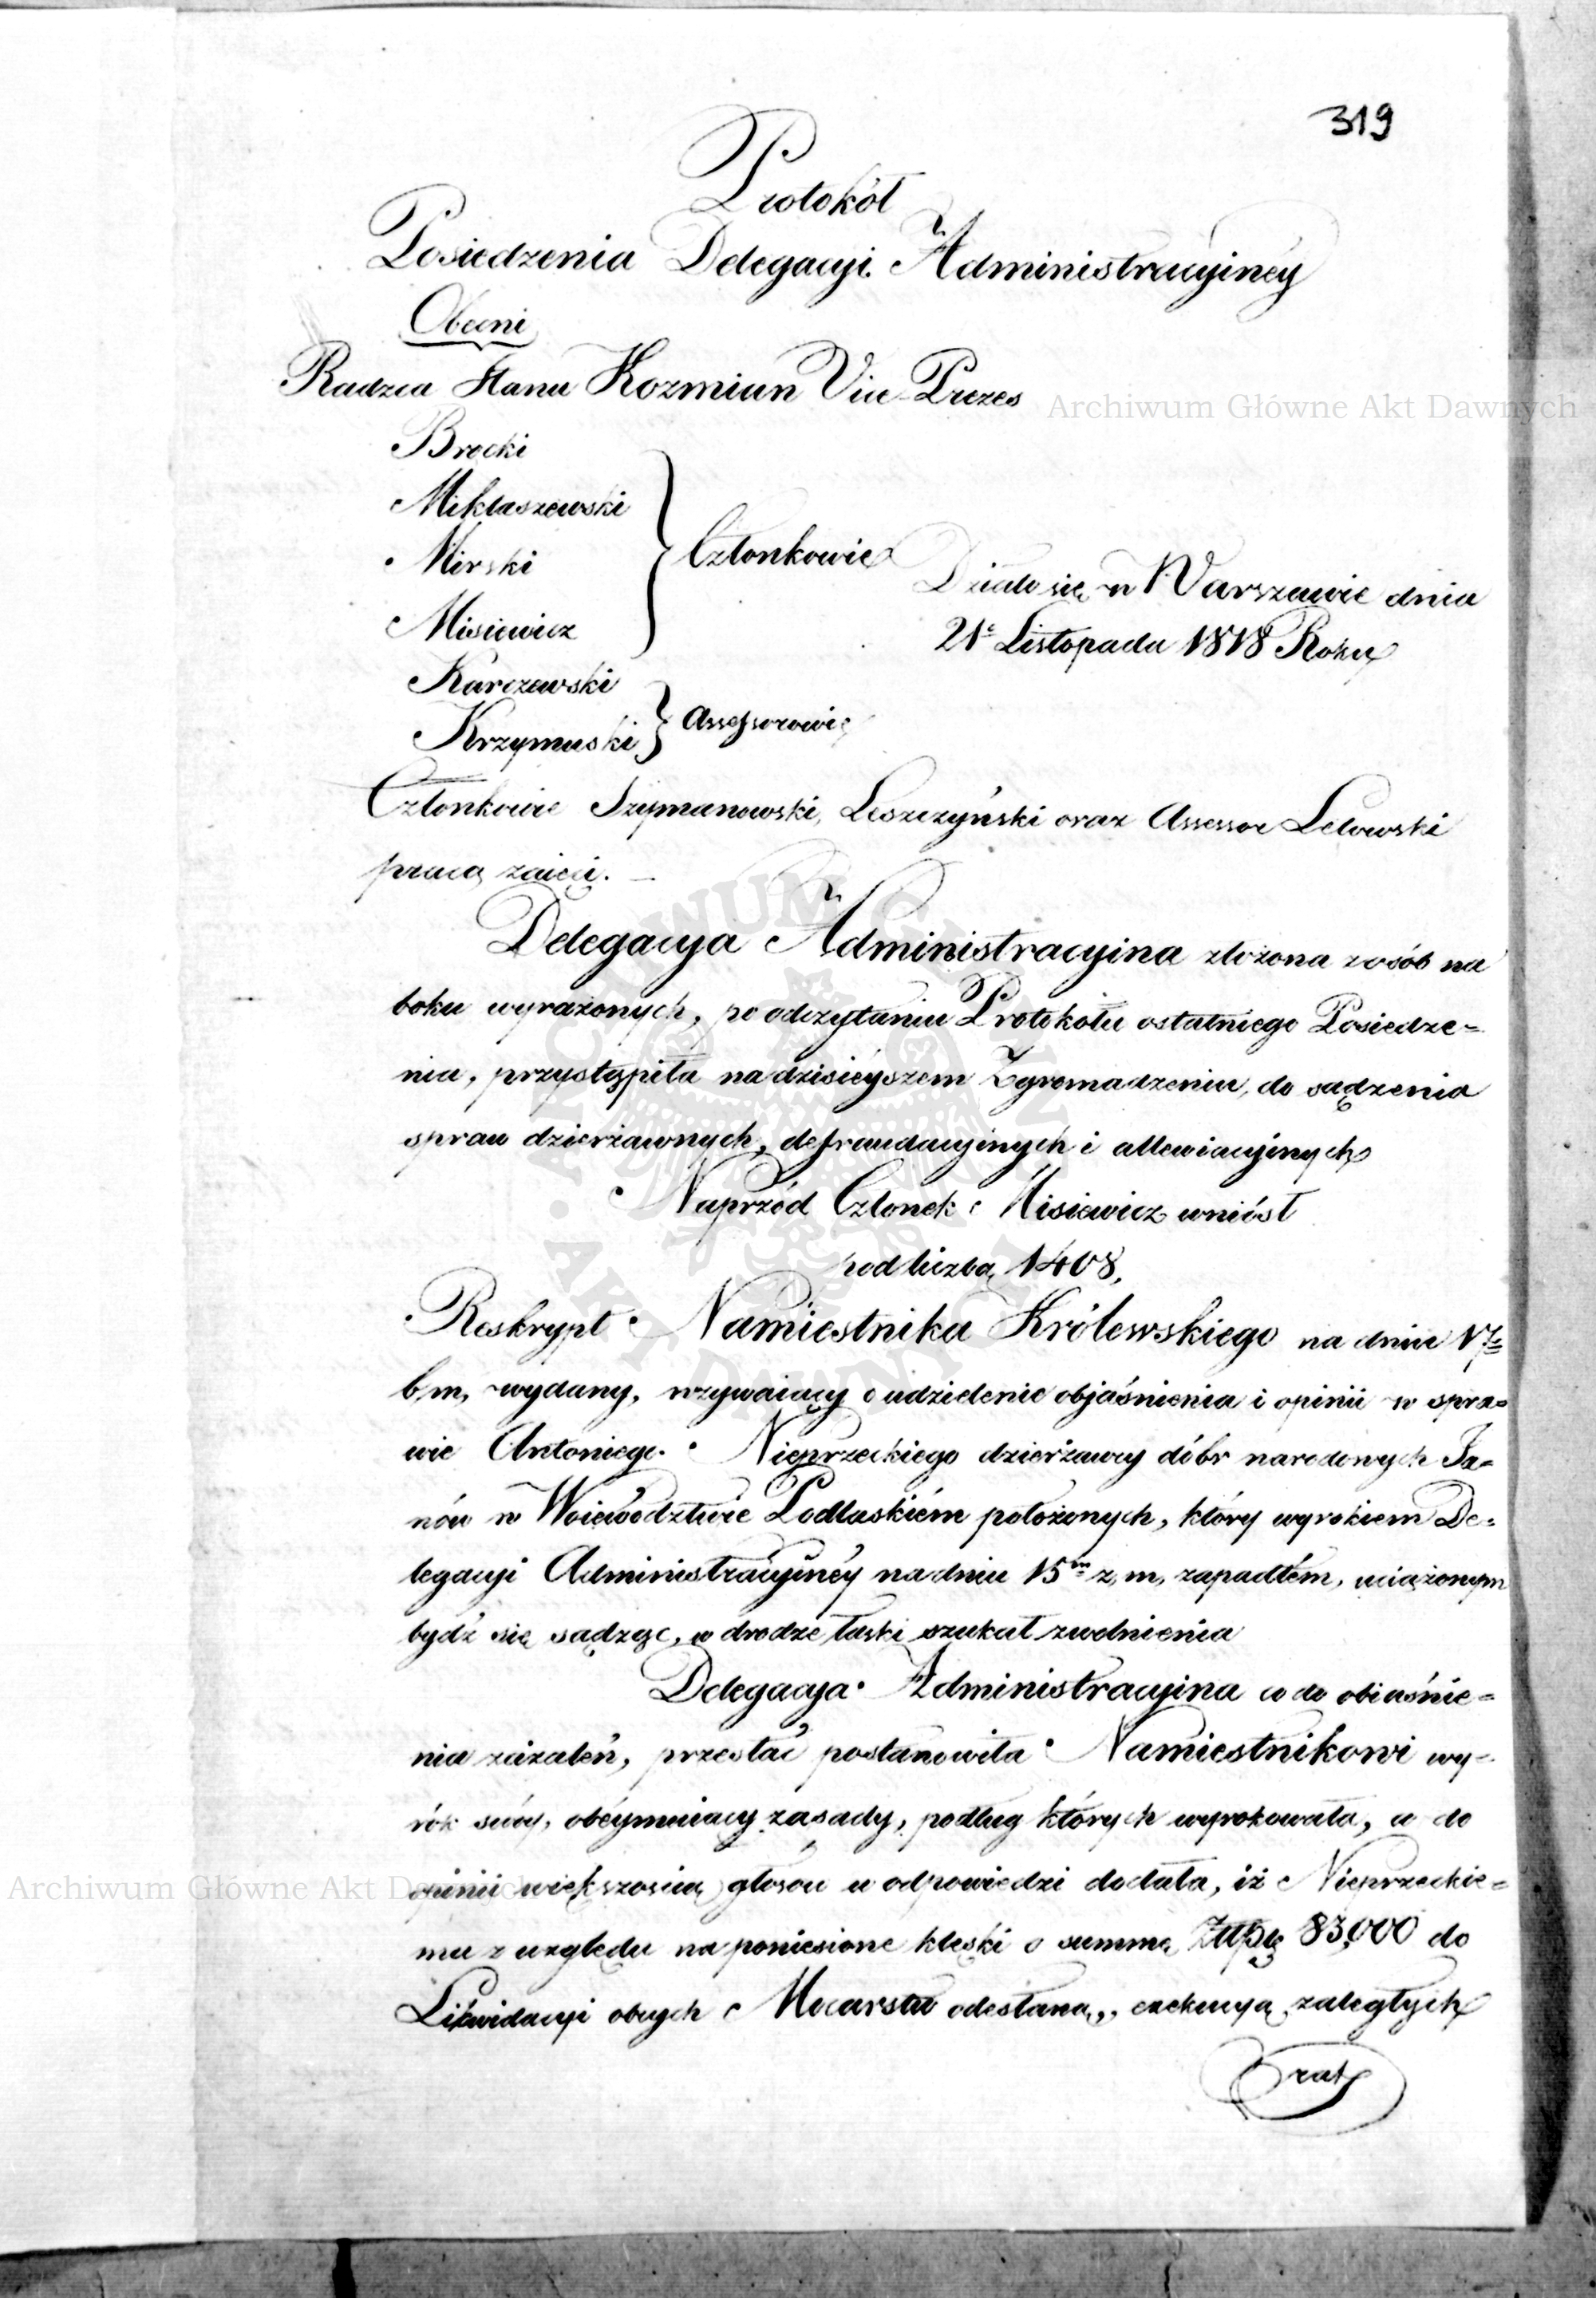 319
Protokół
Posiedzenia Delegacyi Administracyiney
Obecni
Radzca Stanu Kozmian Vice-Prezes
Brocki
Miklaszewski
Mirski
Misiewicz
Członkowie
Działo się w Warszawie dnia
21º Listopada 1818 Roku
Karczewski
Krzymuski
Assessorowie
Członkowie Szymanowski, Leszczyński oraz Assessor Lelowski
pracą zaięci. —
Delegacya Administracyina złożona z osób na
boku wyrażonych, po odczytaniu Protokołu ostatniego Posiedze=
nia, przystąpiła na dzisiéyszem Zgromadzeniu, do sądzenia
spraw dzierżawnych, defraudacyinych i allewiacyinych
Naprzód Członek Misiewicz wniósł
pod liczbą 1408,
Reskrypt Namiestnika Królewskiego na dniu 17º
b, m, wydany, wzywaiący o udzielenie objaśnienia i opinii w spra=
wie Antoniego Nieprzeckiego dzierżawcy dóbr narodowych Ja=
nów w Woiewództwie Podlaskiém położonych, który wyrokiem De=
legacyi Administracyinéy na dniu 15m z, m, zapadłém, uciążonym
bydź się sądząc, w drodze łaski szukał zwolnienia
Delegacya Administracyina co do obiaśnie=
nia zażaleń, przesłać postanowiła Namiestnikowi wy=
rok swóy, obéymuiący zasady, podług których wyrokowała, co do
opinii większością głosów w odpowiedzi dodała, iż Nieprzeckie=
mu z względu na poniesione klęski o summę Złłpp 83,000 do
Likwidacyi obcych Mocarstw odesłaną,, exekucya zaległych
Archiwum Główne Akt Dawnych
Archiwum Główne Akt D
rat
ARCHIWUM GŁÓWNE · AKT DAWNYCH ·